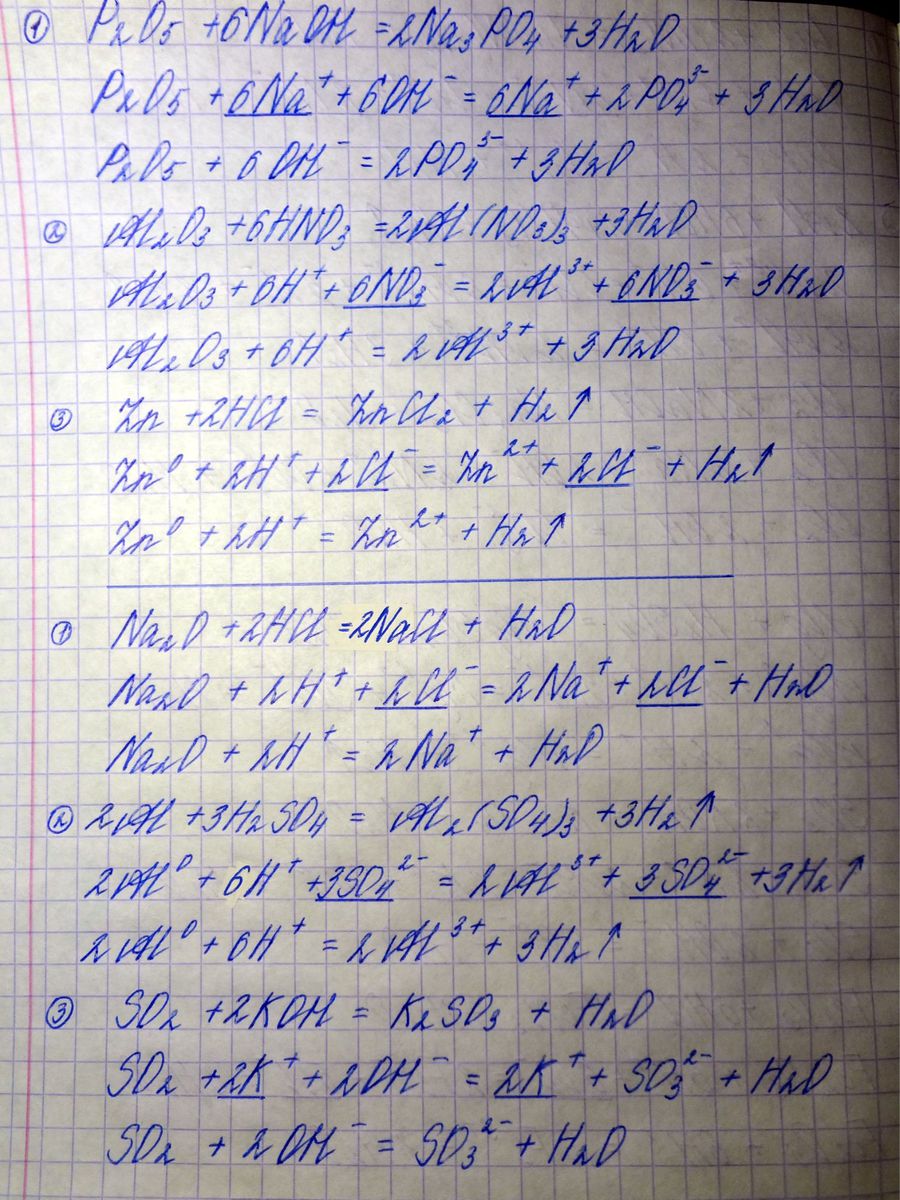 ① P₂O₅ + 6NaOH = 2Na₃PO₄ + 3H₂O
P₂O₅ + 6Na⁺ + 6OH⁻ = 6Na⁺ + 2PO₄³⁻ + 3H₂O
P₂O₅ + 6OH⁻ = 2PO₄³⁻ + 3H₂O
② Al₂O₃ + 6HNO₃ = 2Al(NO₃)₃ + 3H₂O
Al₂O₃ + 6H⁺ + 6NO₃⁻ = 2Al³⁺ + 6NO₃⁻ + 3H₂O
Al₂O₃ + 6H⁺ = 2Al³⁺ + 3H₂O
③ Zn + 2HCl = ZnCl₂ + H₂↑
Zn⁰ + 2H⁺ + 2Cl⁻ = Zn²⁺ + 2Cl⁻ + H₂↑
Zn⁰ + 2H⁺ = Zn²⁺ + H₂↑
① Na₂O + 2HCl = 2NaCl + H₂O
Na₂O + 2H⁺ + 2Cl⁻ = 2Na⁺ + 2Cl⁻ + H₂O
Na₂O + 2H⁺ = 2Na⁺ + H₂O
② 2Al + 3H₂SO₄ = Al₂(SO₄)₃ + 3H₂↑
2Al⁰ + 6H⁺ + 3SO₄²⁻ = 2Al³⁺ + 3SO₄²⁻ + 3H₂↑
2Al⁰ + 6H⁺ = 2Al³⁺ + 3H₂↑
③ SO₂ + 2KOH = K₂SO₃ + H₂O
SO₂ + 2K⁺ + 2OH⁻ = 2K⁺ + SO₃²⁻ + H₂O
SO₂ + 2OH⁻ = SO₃²⁻ + H₂O